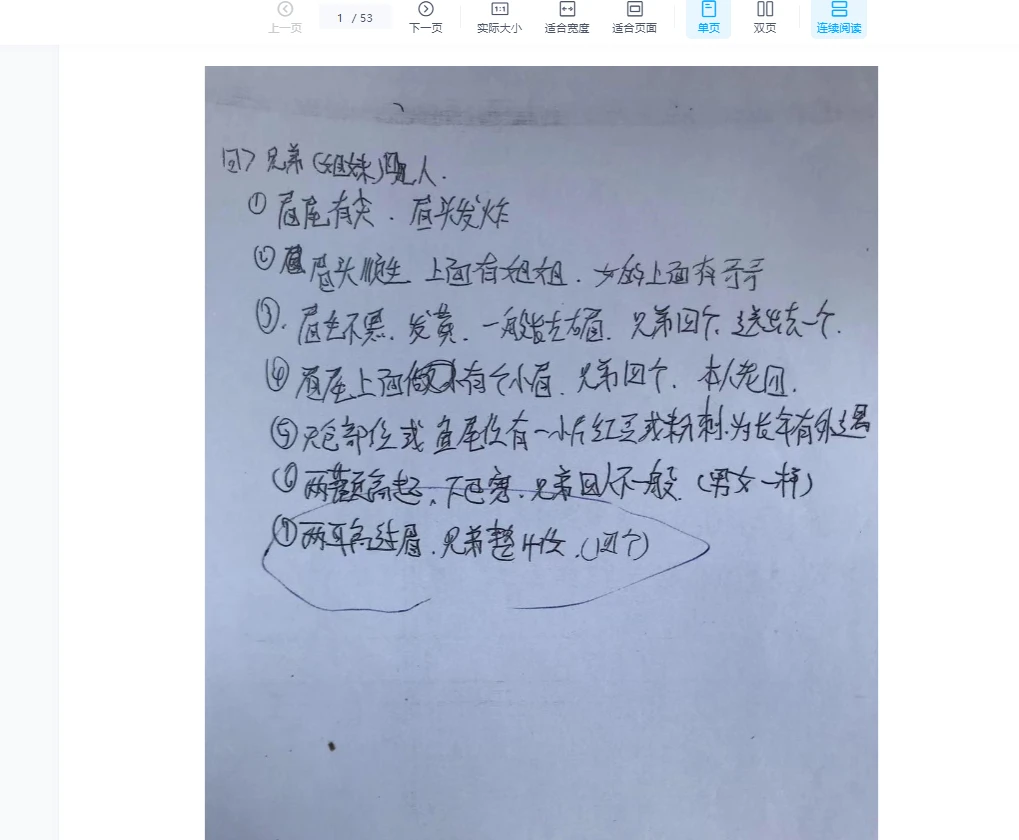 上一页
1 / 53
下一页
1:1
实际大小
适合宽度
适合页面
单页
双页
连续阅读
四> 兄弟(姐妹)四人.
① 眉尾有尖. 眉头发炸
② 眉头顺生 上面有姐姐. 女的上面有哥哥
③. 眉毛不黑. 发黄. 一般指左右眉. 兄弟四个. 送出去一个.
④ 眉尾上面 有个小眉. 兄弟四个. 本人老四.
⑤ 天仓部位或鱼尾位有一小片红豆或粉刺.为长年有外遇
⑥ 两颧高起. 下巴宽. 兄弟四人不一般. (男女一样)
⑦ 两耳高过眉. 兄弟整 . (四个)